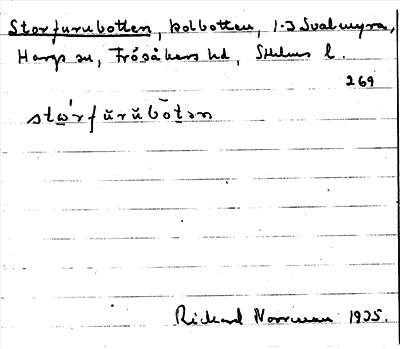 Storfurubotten, kolbotten, 1.3 Svalmyra,
Hargs sn, Frösåkers hd, Sthlms l.
269
stω'rfŭrŭbōtən
Richard Norrman 1925.